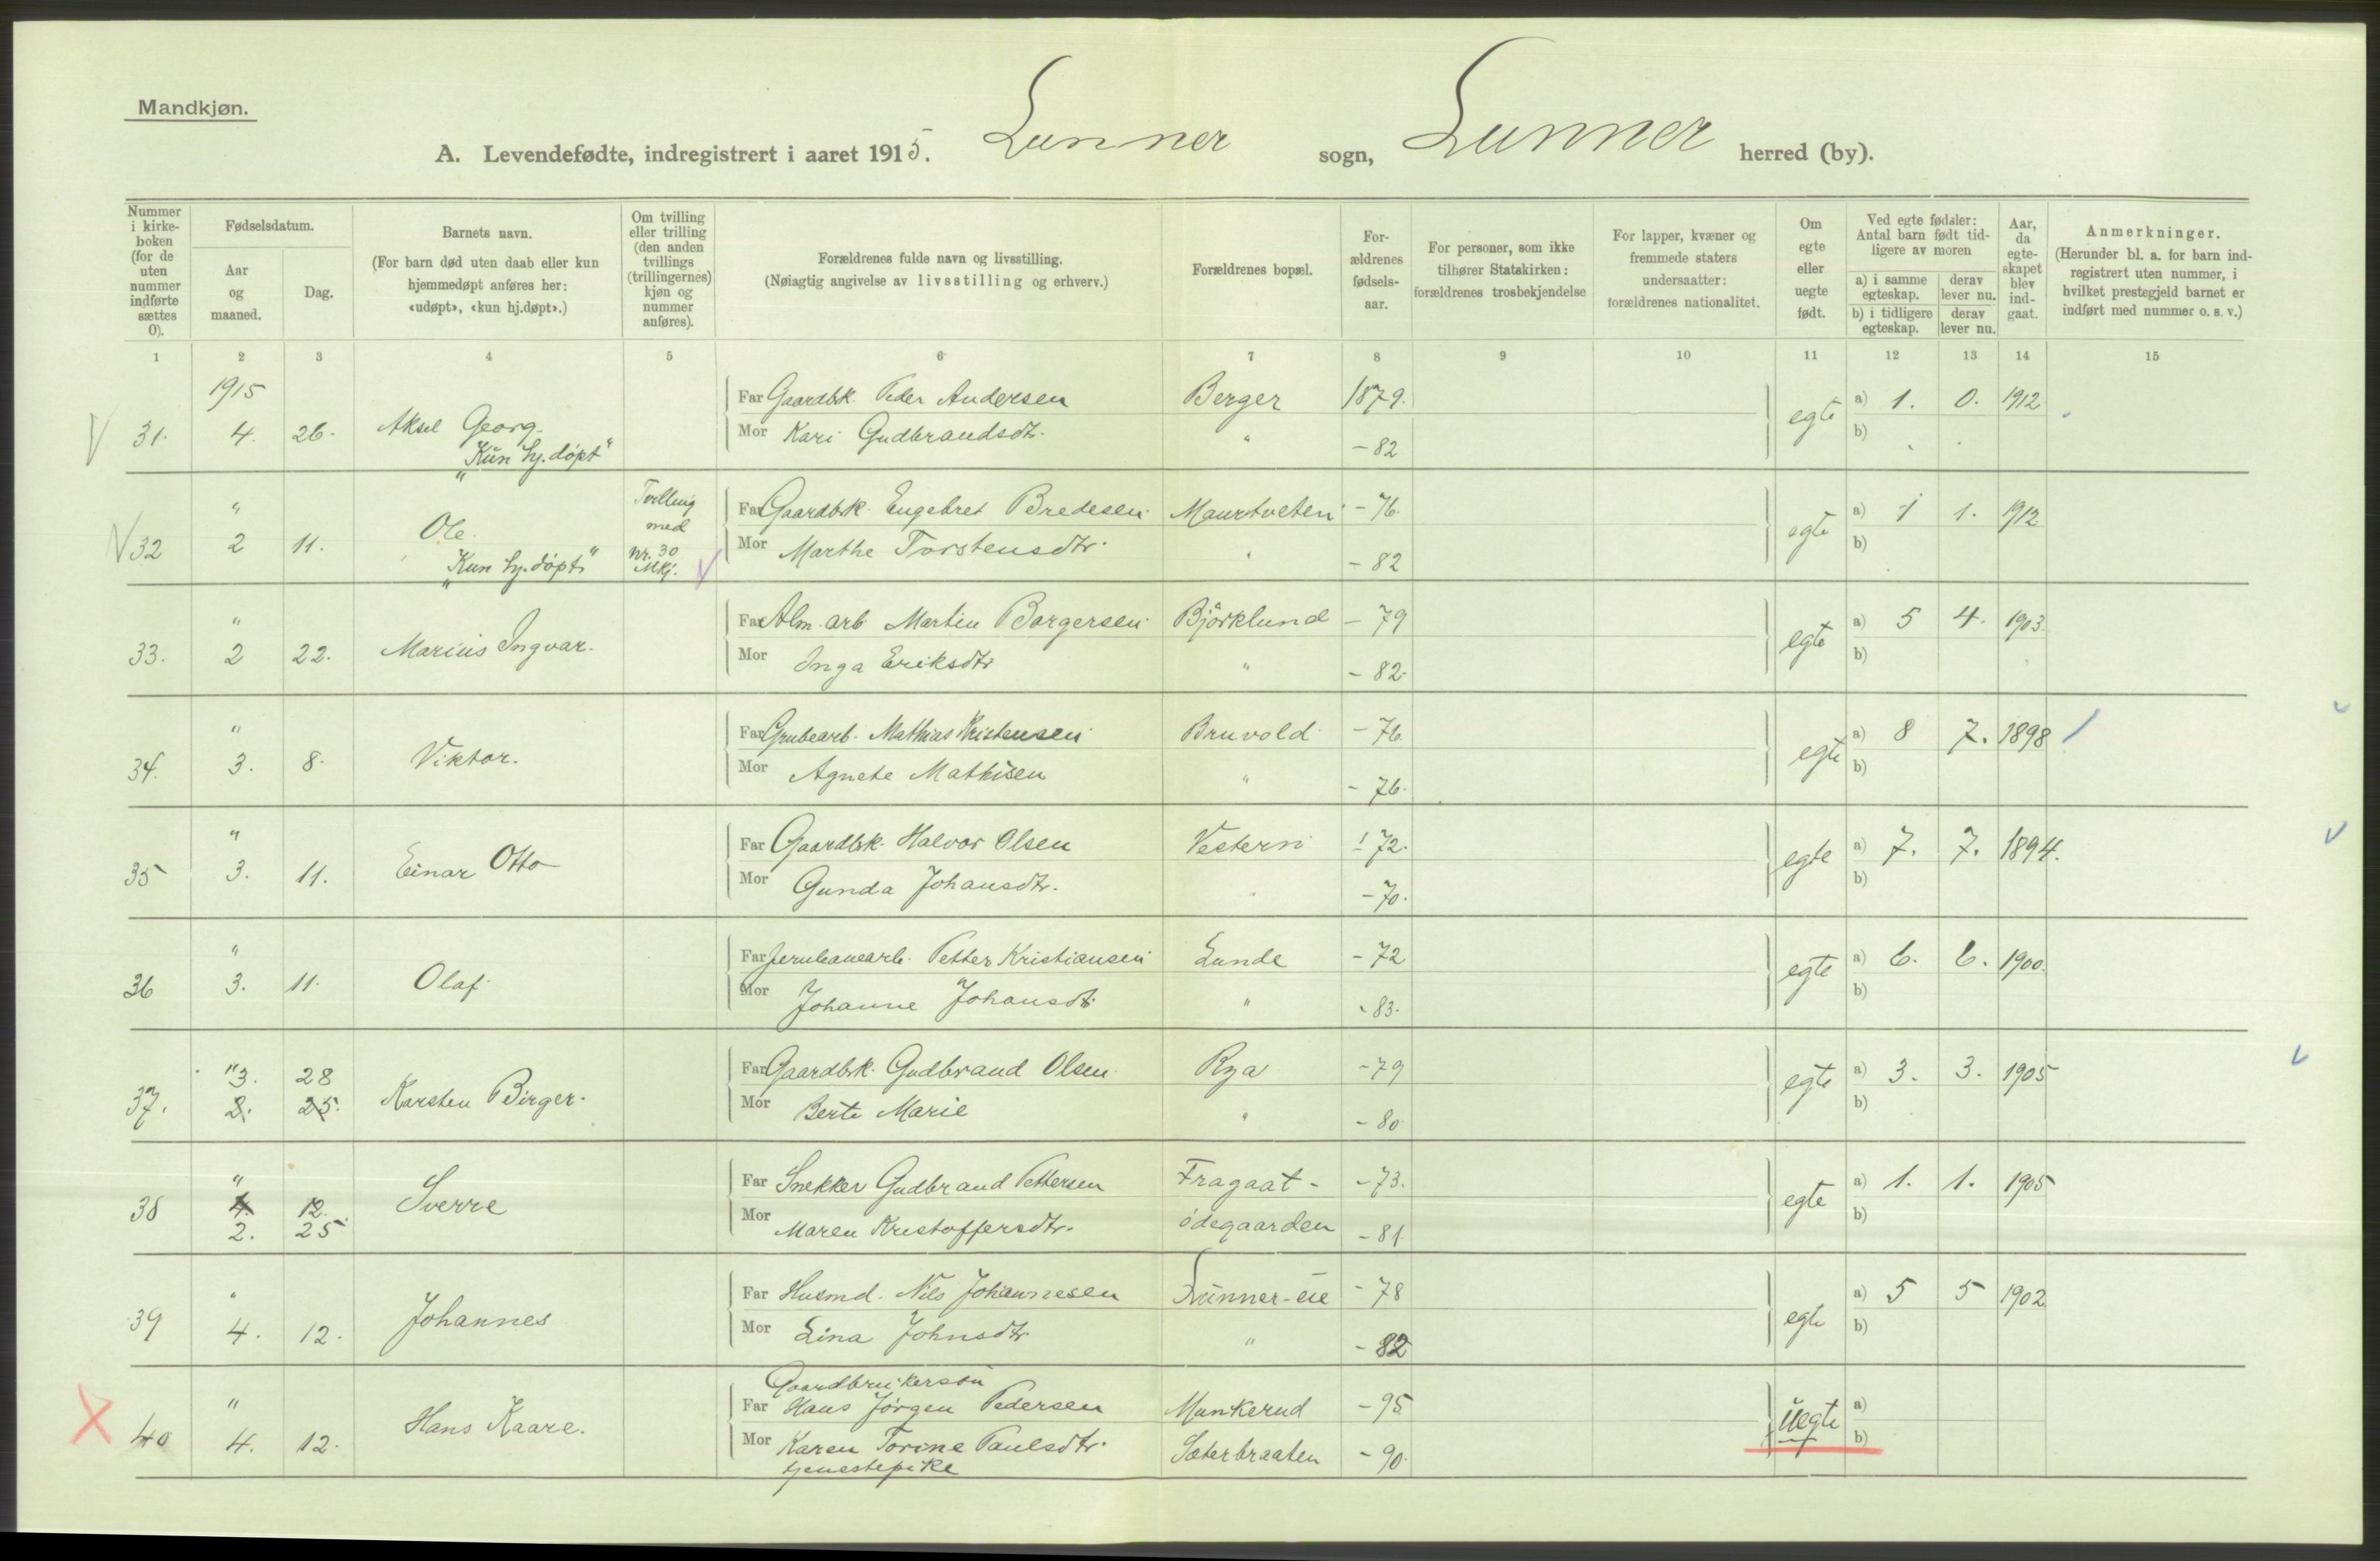 Mandkjøn.
A. Levendefødte, indregistrert i aaret 1915. Lunner sogn, Lunner herred (by).
Nummer i kirke-boken (for de uten nummer indførte sættes 0).
Fødselsdatum.
Aar og maaned.
Dag.
Barnets navn.
(For barn død uten daab eller kun hjemmedøpt anføres her: «udøpt», «kun hj.døpt».)
Om tvilling eller trilling (den anden tvillings (trillingernes) kjøn og nummer anføres).
Forældrenes fulde navn og livsstilling.
(Nøiagtig angivelse av livsstilling og erhverv.)
Forældrenes bopæl.
For-ældrenes fødsels-aar.
For personer, som ikke tilhører Statskirken: forældrenes trosbekjendelse
For lapper, kvæner og fremmede staters undersaatter: forældrenes nationalitet.
Om egte eller uegte født.
Ved egte fødsler: Antal barn født tid-ligere av moren
a) i samme egteskap.
derav lever nu.
b) i tidligere egteskap.
derav lever nu.
Aar, da egte-skapet blev ind-gaat.
Anmerkninger.
(Herunder bl. a. for barn ind-registrert uten nummer, i hvilket prestegjeld barnet er indført med nummer o. s. v.)
1 2 3 4 5 6 7 8 9 10 11 12 13 14 15
1915
Far Gaardbk. Peder Andersen Berger 1879. a) 1. 0. 1912
31. 4. 26. Aksel Georg. Mor Kari Gudbrandsdtr. " -82 egte b)
"Kun hj. døpt"
" Tvilling med Far Gaardbk. Engebret Bredesen Maurtveten -76. a) 1 1. 1912
32 2 11. Ole. Nr. 30 Mkj. Mor Marthe Torstensdtr. " -82 egte b)
"Kun hj. døpt"
" Far Alm. arb Martin Borgersen Björklund -79 a) 5 4. 1903.
33. 2 22. Marius Ingvar. Mor Inga Eriksdtr " -82. egte b)
" Far Grubearb. Mathias Kristensen Bruvold -76 a) 8 7. 1898
34. 3. 8. Viktor. Mor Agnete Mathisen " -76. egte b)
" Far Gaardbk. Halvor Olsen Vestern -72. a) 7. 7. 1894.
35 3. 11. Einar Otto Mor Gunda Johansdtr. " -70. egte b)
" Far Jernbanearb. Petter Kristiansen Lunde -72 a) 6. 6. 1900.
36 3. 11. Olaf. Mor Johanne Johansdtr. " -83. egte b)
" 3. 28 Far Gaardbk. Gudbrand Olsen Rya -79 a) 3. 3. 1905
37. 2. 25. Karsten Birger. Mor Berte Marie " -80 egte b)
" Far Snekker Gudbrand Pettersen Fragaat- -73. a) 1. 1. 1905
38 4. 12. Sverre Mor Maren Kristoffersdtr. ødegaarden -81 egte b)
2. 25
" Far Husmd. Nils Johannesen Lunner-eie -78 a) 5 5 1902
39 4. 12. Johannes Mor Lina Johnsdtr " -82 egte b)
Gaardbrukersøn
" Far Hans Jørgen Pedersen Munkerud -95 a)
40 4. 12. Hans Kaare. Mor Karen Torine Paulsdtr. Sæterbraaten -90. uegte b)
tjenestepike